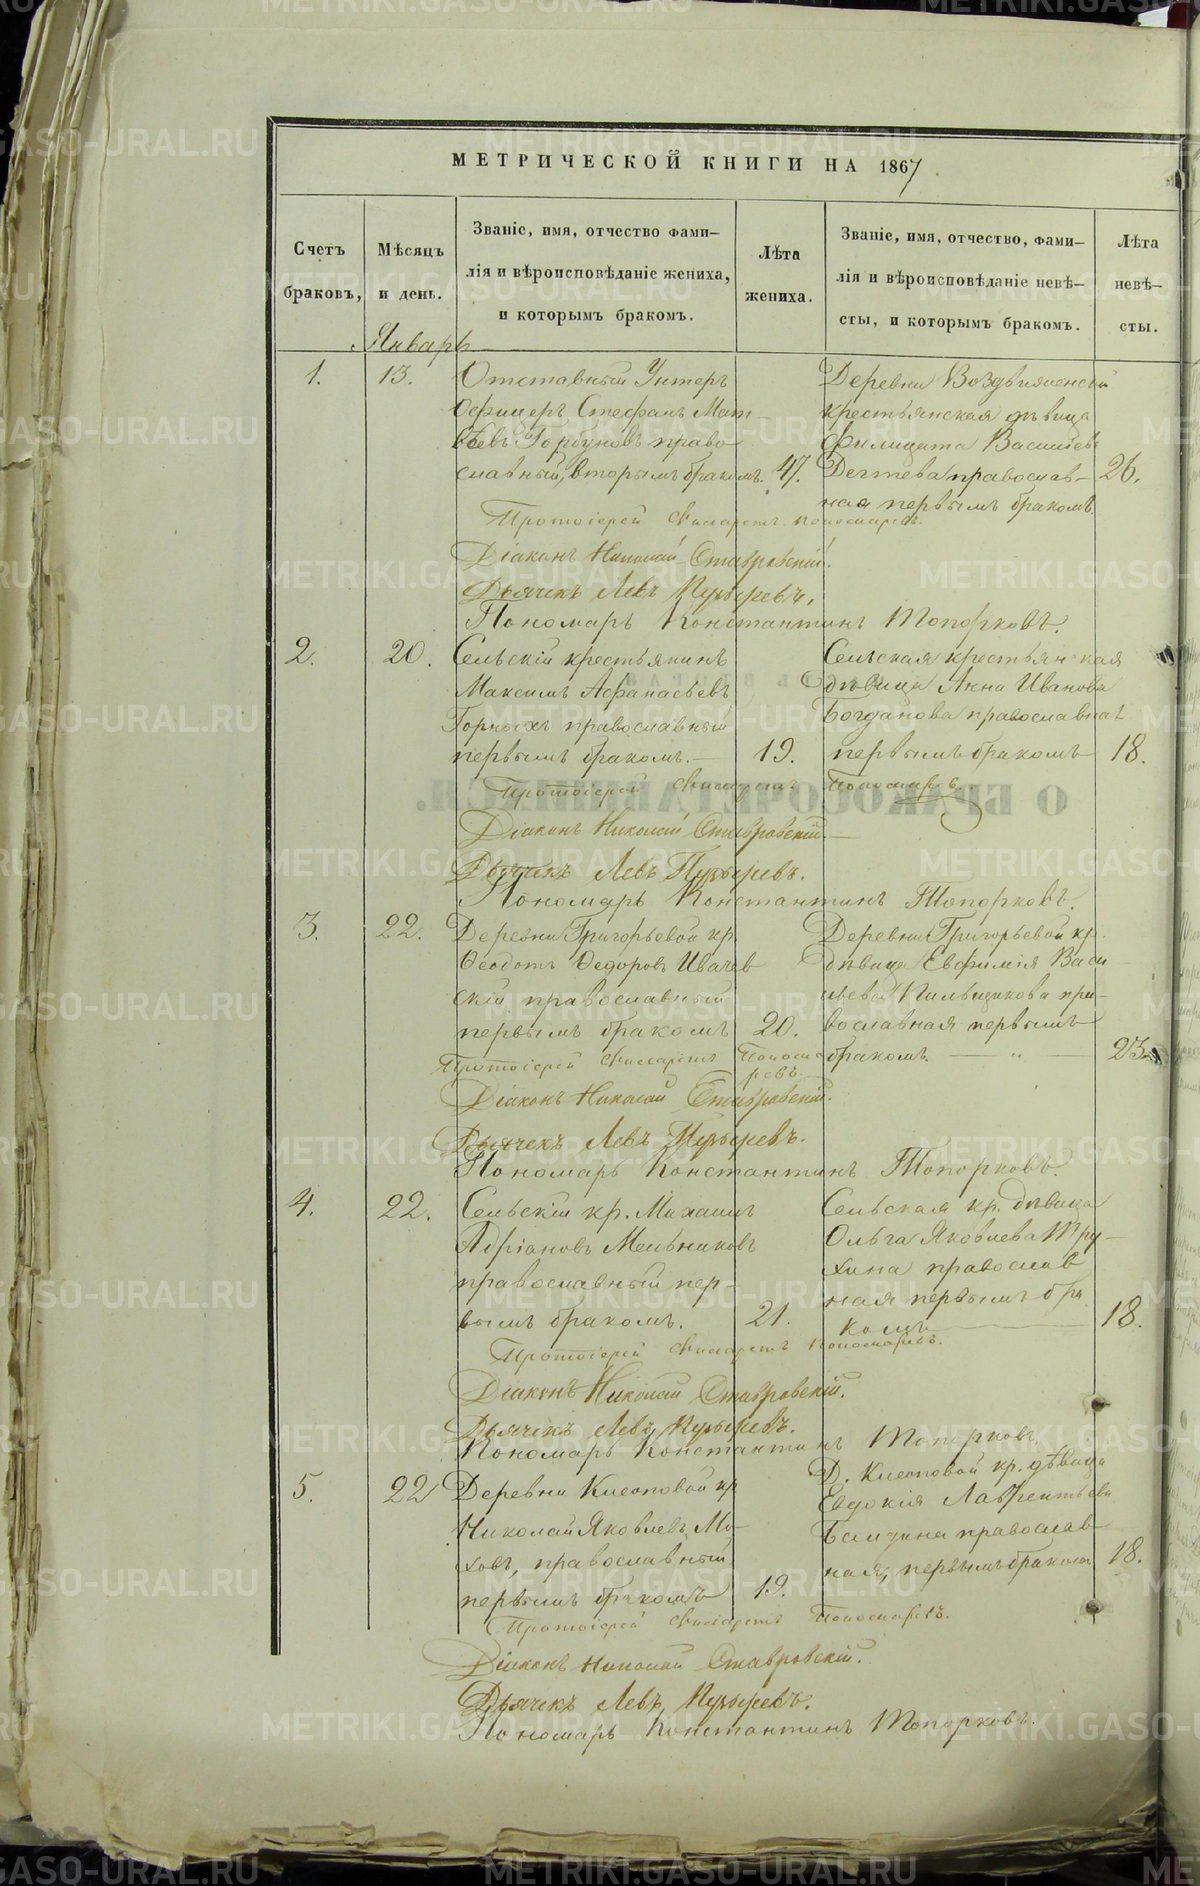 МЕТРИЧЕСКОЙ КНИГИ НА 1867
Счетъ
браковъ,
Мѣсяцъ
и день.
Званіе, имя, отчество фами-
лія и вѣроисповѣданіе жениха,
и которымъ бракомъ.
Лѣта
жениха.
Званіе, имя, отчество, фами-
лія и вѣроисповѣданіе невѣ-
сты, и которымъ бракомъ.
Лѣта
невѣ-
сты.
Январь
1.
13.
Отставный Унтеръ
Офицеръ Стефанъ Мат-
Горбуновъ право
славный, вторымъ бракомъ.
47.
Деревни Воздвиженской
крестьянская дѣвица
Филицата Василіев
православ-
ная первымъ бракомъ.
26.
Протоіерей Филаретъ Пономаревъ.
Діаконъ Николай Ставровскій.
Дьячекъ Левъ Пузыревъ.
Пономарь Константинъ Топорковъ.
2.
20.
Сельскій крестьянинъ
Максимъ Афанасьевъ
Горныхъ православный
первымъ бракомъ.
19.
Сельская крестьянская
дѣвица Анна Иванова
Богданова православная
первымъ бракомъ
18.
Протоіерей Филаретъ Пономаревъ.
Діаконъ Николай Ставровскій.
Дьячекъ Левъ Пузыревъ.
Пономарь Константинъ Топорковъ.
3.
22.
Деревни Григорьевой кр.
Ѳеодотъ Ѳедоровъ Ивачев
скій православный
первымъ бракомъ
20.
Деревни Григорьевой кр.
дѣвица Евфимія Васи
льева Пильщикова пра-
вославная первымъ
бракомъ. — „ —
23.
Протоіерей Филаретъ Понома
ревъ.
Діаконъ Николай Ставровскій.
Дьячекъ Левъ Пузыревъ.
Пономарь Константинъ Топорковъ.
4.
22.
Сельскій кр. Михаилъ
Адріановъ Мельниковъ
православный пер-
вымъ бракомъ.
21.
Сельская кр. дѣвица
Ольга Яковлева Тру-
хина православ
ная первымъ бра
комъ
18.
Протоіерей Филаретъ Пономаревъ.
Діаконъ Николай Ставровскій.
Дьячекъ Левъ Пузыревъ.
Пономарь Константинъ Топорковъ.
5.
22
Деревни Клеоповой кр
Николай Яковлевъ Мо-
ховъ, православный
первымъ бракомъ
19.
Д. Клеоповой кр. дѣвица
Евдокія Лаврентьева
православ
ная, первымъ бракомъ
18.
Протоіерей Филаретъ Пономаревъ.
Діаконъ Николай Ставровскій.
Дьячекъ Левъ Пузыревъ.
Пономарь Константинъ Топорковъ.
METRIKI.GASO-URAL.RU